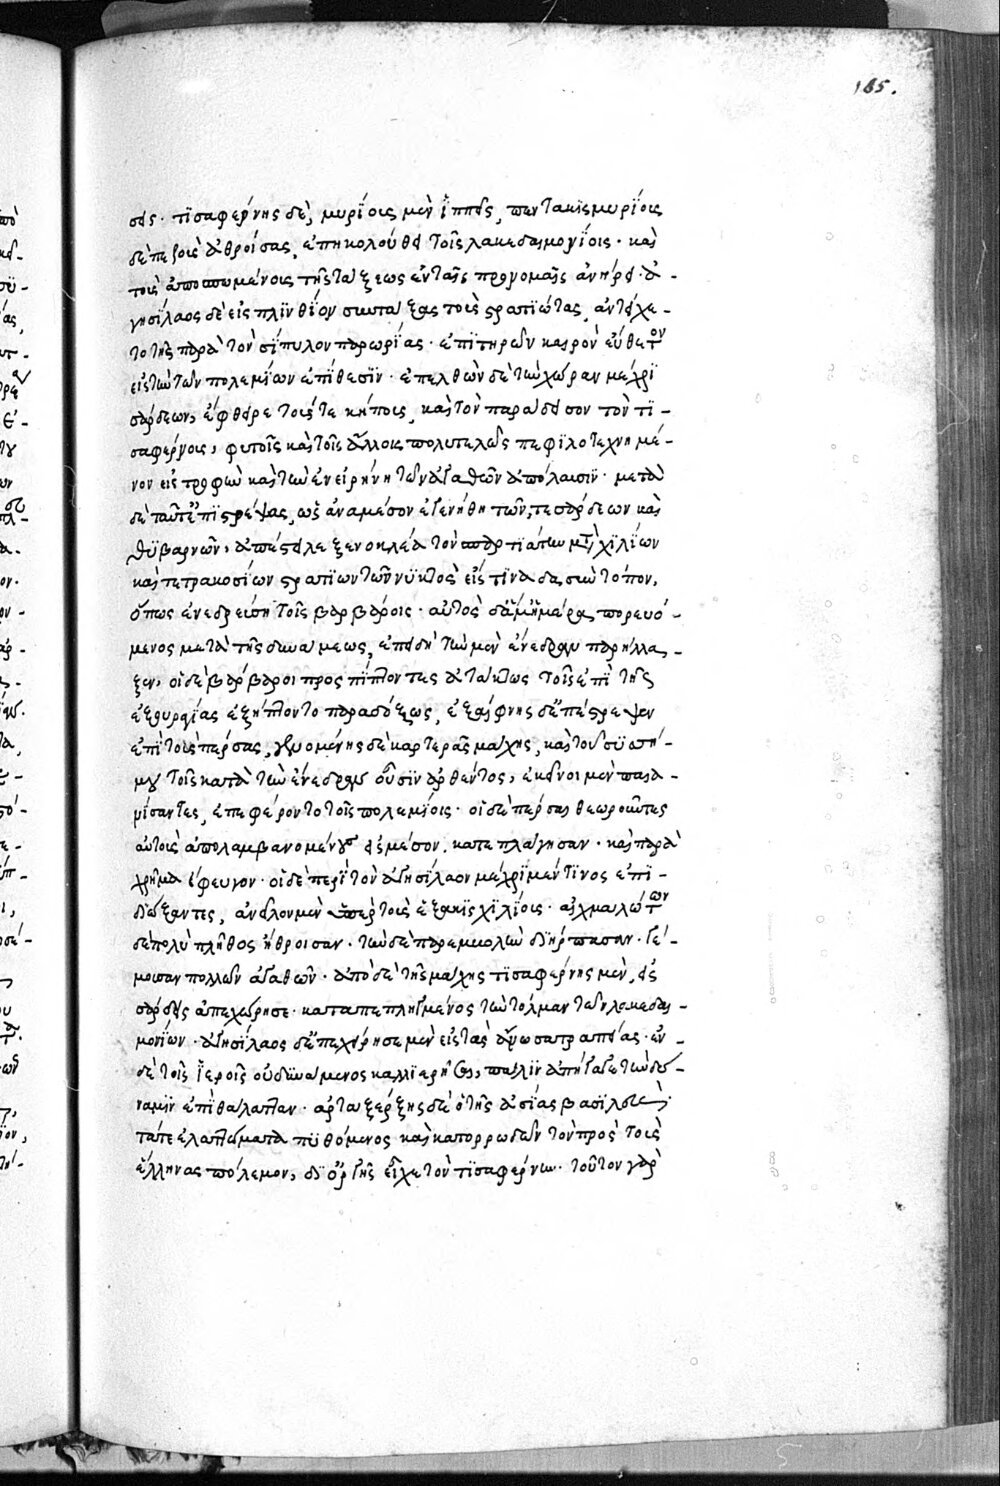 165.
σεις. τισαφέρνης δὲ, μυρίοις μὲν ἵππεῖς, πεντακισμυρίοις
δὲ πεζοὺς ἀθροίσας, ἐπηκολούθει τοῖς λακεδαιμονίοις. καὶ
τοὺς ἀποσπωμένους τῆς τάξεως ἐν ταῖς προνομαῖς ἀνήρει. ἀ-
γησίλαος δὲ εἰς πλινθίον συντάξας τοὺς στρατιώτας, ἀντείχε-
το τῆς παρὰ τὸν σίπυλον παρωρίας. ἐπιτηρῶν καιρὸν εὔθετον
εἰς τὴν τῶν πολεμίων ἐπίθεσιν. ἐπελθὼν δὲ τὴν χώραν μέχρι
σάρδεων, ἔφθειρε τούς τε κήπους, καὶ τὸν παράδεισον τὸν τι-
σαφέρνους, φυτοῖς καὶ τοῖς ἄλλοις πολυτελῶς πεφιλοτεχνημέ-
νον εἰς τρυφὴν καὶ τὴν ἐν εἰρήνῃ τῶν ἀγαθῶν ἀπόλαυσιν. μετὰ
δὲ ταῦτ' ἐπιστρέψας, ὡς ἀναμέσον ἐγενήθη τῶν τε σάρδεων καὶ
θυβαρνῶν, ἀπέστειλε ξενοκλέα τὸν σπαρτιάτην μετὰ χιλίων
καὶ τετρακοσίων στρατιωτῶν νυκτὸς εἴς τινα δασὺν τόπον,
ὅπως ἐνεδρεύσῃ τοῖς βαρβάροις. αὐτὸς δ' ἅμ' ἡμέρᾳ πορευό-
μενος μετὰ τῆς δυνάμεως, ἐπειδὴ τὴν μὲν ἐνέδραν παρήλλα-
ξεν, οἱ δὲ βάρβαροι προσπίπτοντες ἀτάκτως τοῖς ἐπὶ τῆς
οὐραγίας ἐξήπτοντο παραδόξως, ἐξαίφνης δ' ἐπέστρεψεν
ἐπὶ τοὺς πέρσας, γενομένης δὲ καρτερᾶς μάχης, καὶ τοῦ συσσή-
μου τοῖς κατὰ τὴν ἐνέδραν οὖσιν ἀρθέντος, ἐκεῖνοι μὲν παια-
νίσαντες, ἐπεφέροντο τοῖς πολεμίοις. οἱ δὲ πέρσαι θεωροῦντες
αὑτοὺς ἀπολαμβανομένους εἰς μέσον, κατεπλάγησαν. καὶ παρὰ
χρῆμα ἔφευγον. οἱ δὲ περὶ τὸν ἀγησίλαον μέχρι μέν τινος ἐπι-
διώξαντες, ἀνεῖλον μὲν ὑπὲρ τοὺς ἑξακισχιλίους. αἰχμαλώτων
δὲ πολὺ πλῆθος ἤθροισαν. τὴν δὲ παρεμβολὴν διήρπασαν. γέ-
μουσαν πολλῶν ἀγαθῶν. ἀπὸ δὲ τῆς μάχης τισαφέρνης μὲν, εἰς
σάρδεις ἀπεχώρησε. καταπεπληγμένος τὴν τόλμαν τῶν λακεδαι-
μονίων. ἀγησίλαος δ' ἐπεχείρησε μὲν εἰς τὰς ἄνω σατραπείας. ἐν
δὲ τοῖς ἱεροῖς οὐ δυνάμενος καλλιερῆσαι, πάλιν ἀπήγαγε τὴν δύ-
ναμιν ἐπὶ θάλατταν. ἀρταξέρξης δὲ ὁ τῆς ἀσίας βασιλεὺς
τά τε ἐλαττώματα πυθόμενος καὶ κατορρωδῶν τὸν πρὸς τοὺς
ἕλληνας πόλεμον, δι' ὀργῆς εἶχε τὸν τισαφέρνην. τοῦτον γὰρ